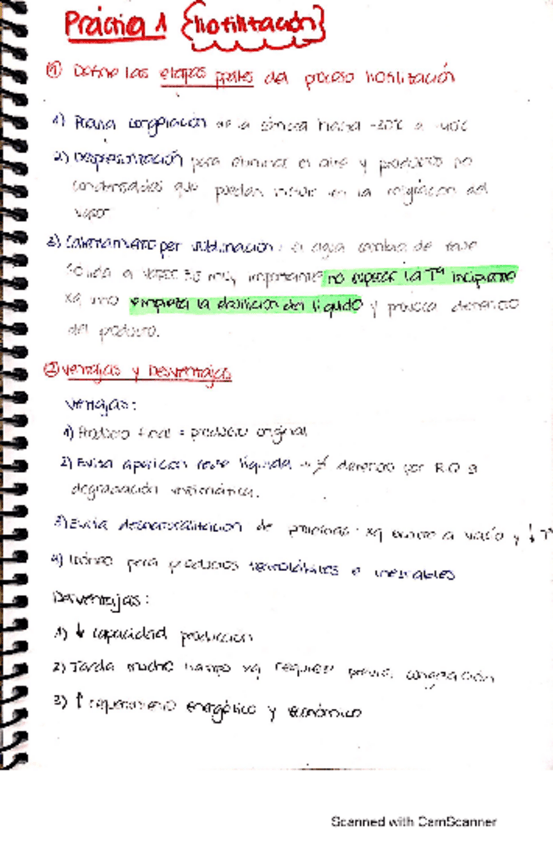 Práctica 1 {liofilización}
① Define las etapas ppales del proceso liofilización
1) Previa congelación de la sólida hasta -20ºC a -40ºC
2) Despresurización para eliminar el aire y productos no
condensables que puedan influir en la migración del
vapor
3) Calentamiento por sublimación: el agua cambia de fase
sólida a vapor. Es muy importante no superar la Tª incipiente
xq sino empieza la ebullición del líquido y provoca deterioro
del producto.
② Ventajas y Desventajas
Ventajas:
1) Producto final = producto original
2) Evita aparición fase líquida → deterioro por R.Q. o
degradación enzimática.
3) Evita desnaturalización de proteínas xq ocurre a vacío y ↓ Tª
4) Idóneo para productos termolábiles e inestables
Desventajas:
1) ↓ capacidad producción
2) Tarda mucho tiempo xq requiere previa congelación
3) ↑ requerimiento energético y económico
Scanned with CamScanner